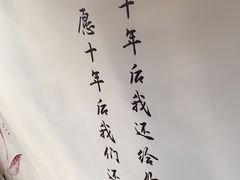 十年后我还给
愿十年后我们还